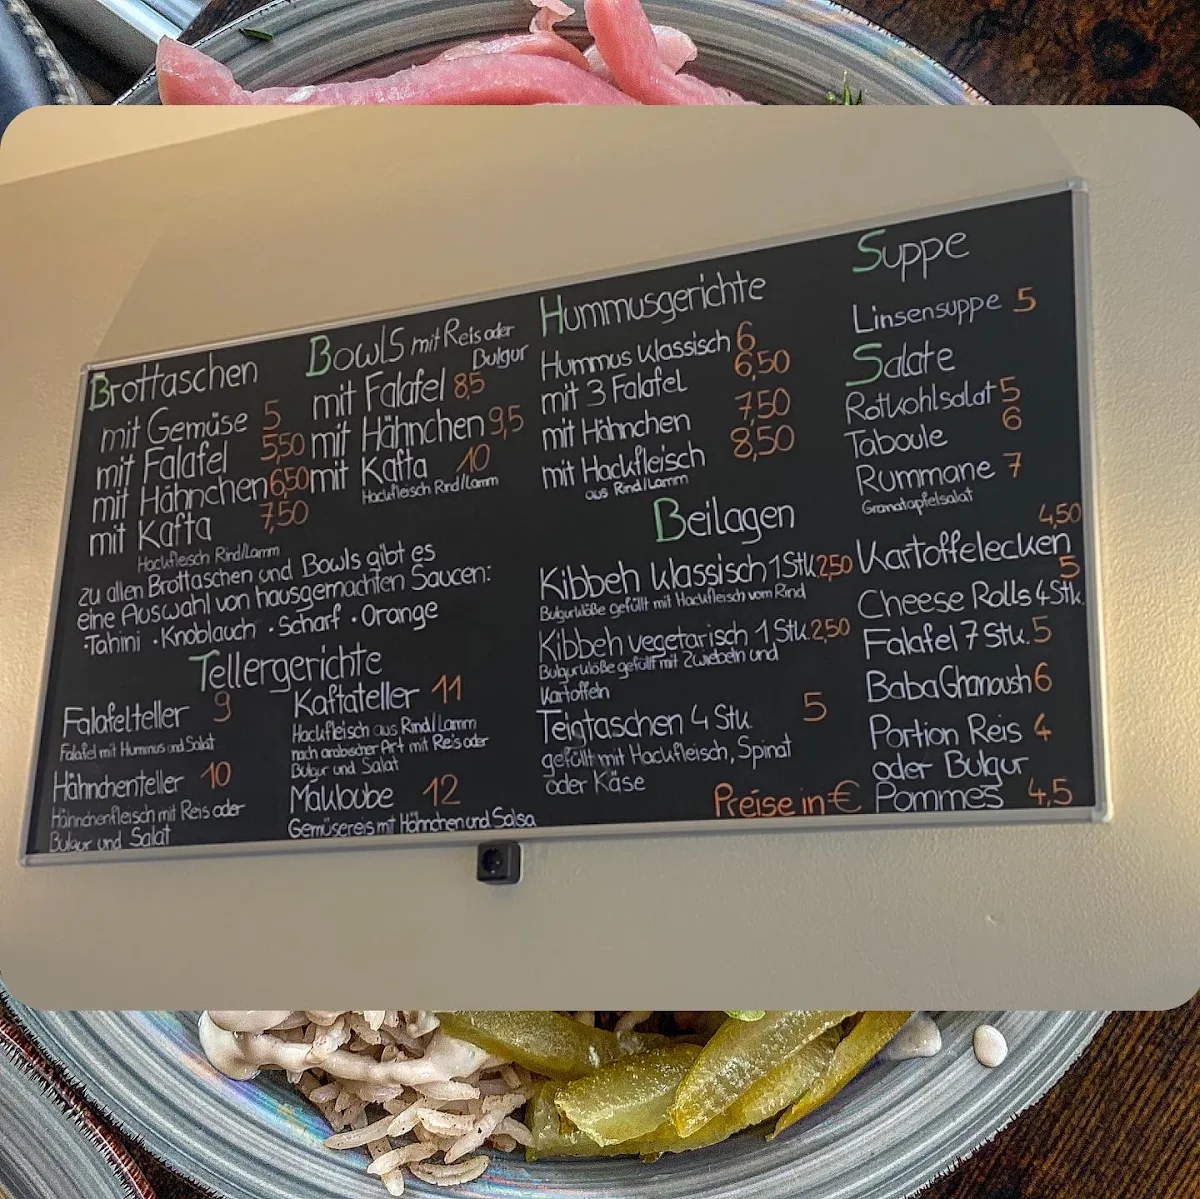 Brottaschen
mit Gemüse 5
mit Falafel 5,50
mit Hähnchen 6,50
mit Kafta 7,50
Hackfleisch Rind/Lamm
Bowls mit Reis oder
Bulgur
mit Falafel 8,5
mit Hähnchen 9,5
mit Kafta 10
Hackfleisch Rind/Lamm
zu allen Brottaschen und Bowls gibt es
eine Auswahl von hausgemachten Saucen:
·Tahini ·Knoblauch ·Scharf ·Orange
Tellergerichte
Falafelteller 9
Falafel mit Hummus und Salat
Hähnchenteller 10
Hähnchenfleisch mit Reis oder
Bulgur und Salat
Kaftateller 11
Hackfleisch aus Rind/Lamm
nach arabischer Art mit Reis oder
Bulgur und Salat
Makloube 12
Gemüsereis mit Hähnchen und Salsa
Hummusgerichte
Hummus klassisch 6
mit 3 Falafel 6,50
mit Hähnchen 7,50
mit Hackfleisch 8,50
aus Rind/Lamm
Beilagen
Kibbeh klassisch 1 Stk. 2,50
Bulgurklöße gefüllt mit Hackfleisch vom Rind
Kibbeh vegetarisch 1 Stk. 2,50
Bulgurklöße gefüllt mit Zwiebeln und
Kartoffeln
Teigtaschen 4 Stk 5
gefüllt mit Hackfleisch, Spinat
oder Käse
Preise in €
Suppe
Linsensuppe 5
Salate
Rotkohlsalat 5
Taboule 6
Rummane 7
Granatapfelsalat
4,50
Kartoffelecken
5
Cheese Rolls 4 Stk.
Falafel 7 Stk. 5
Baba Ghanoush 6
Portion Reis 4
oder Bulgur
Pommes 4,5